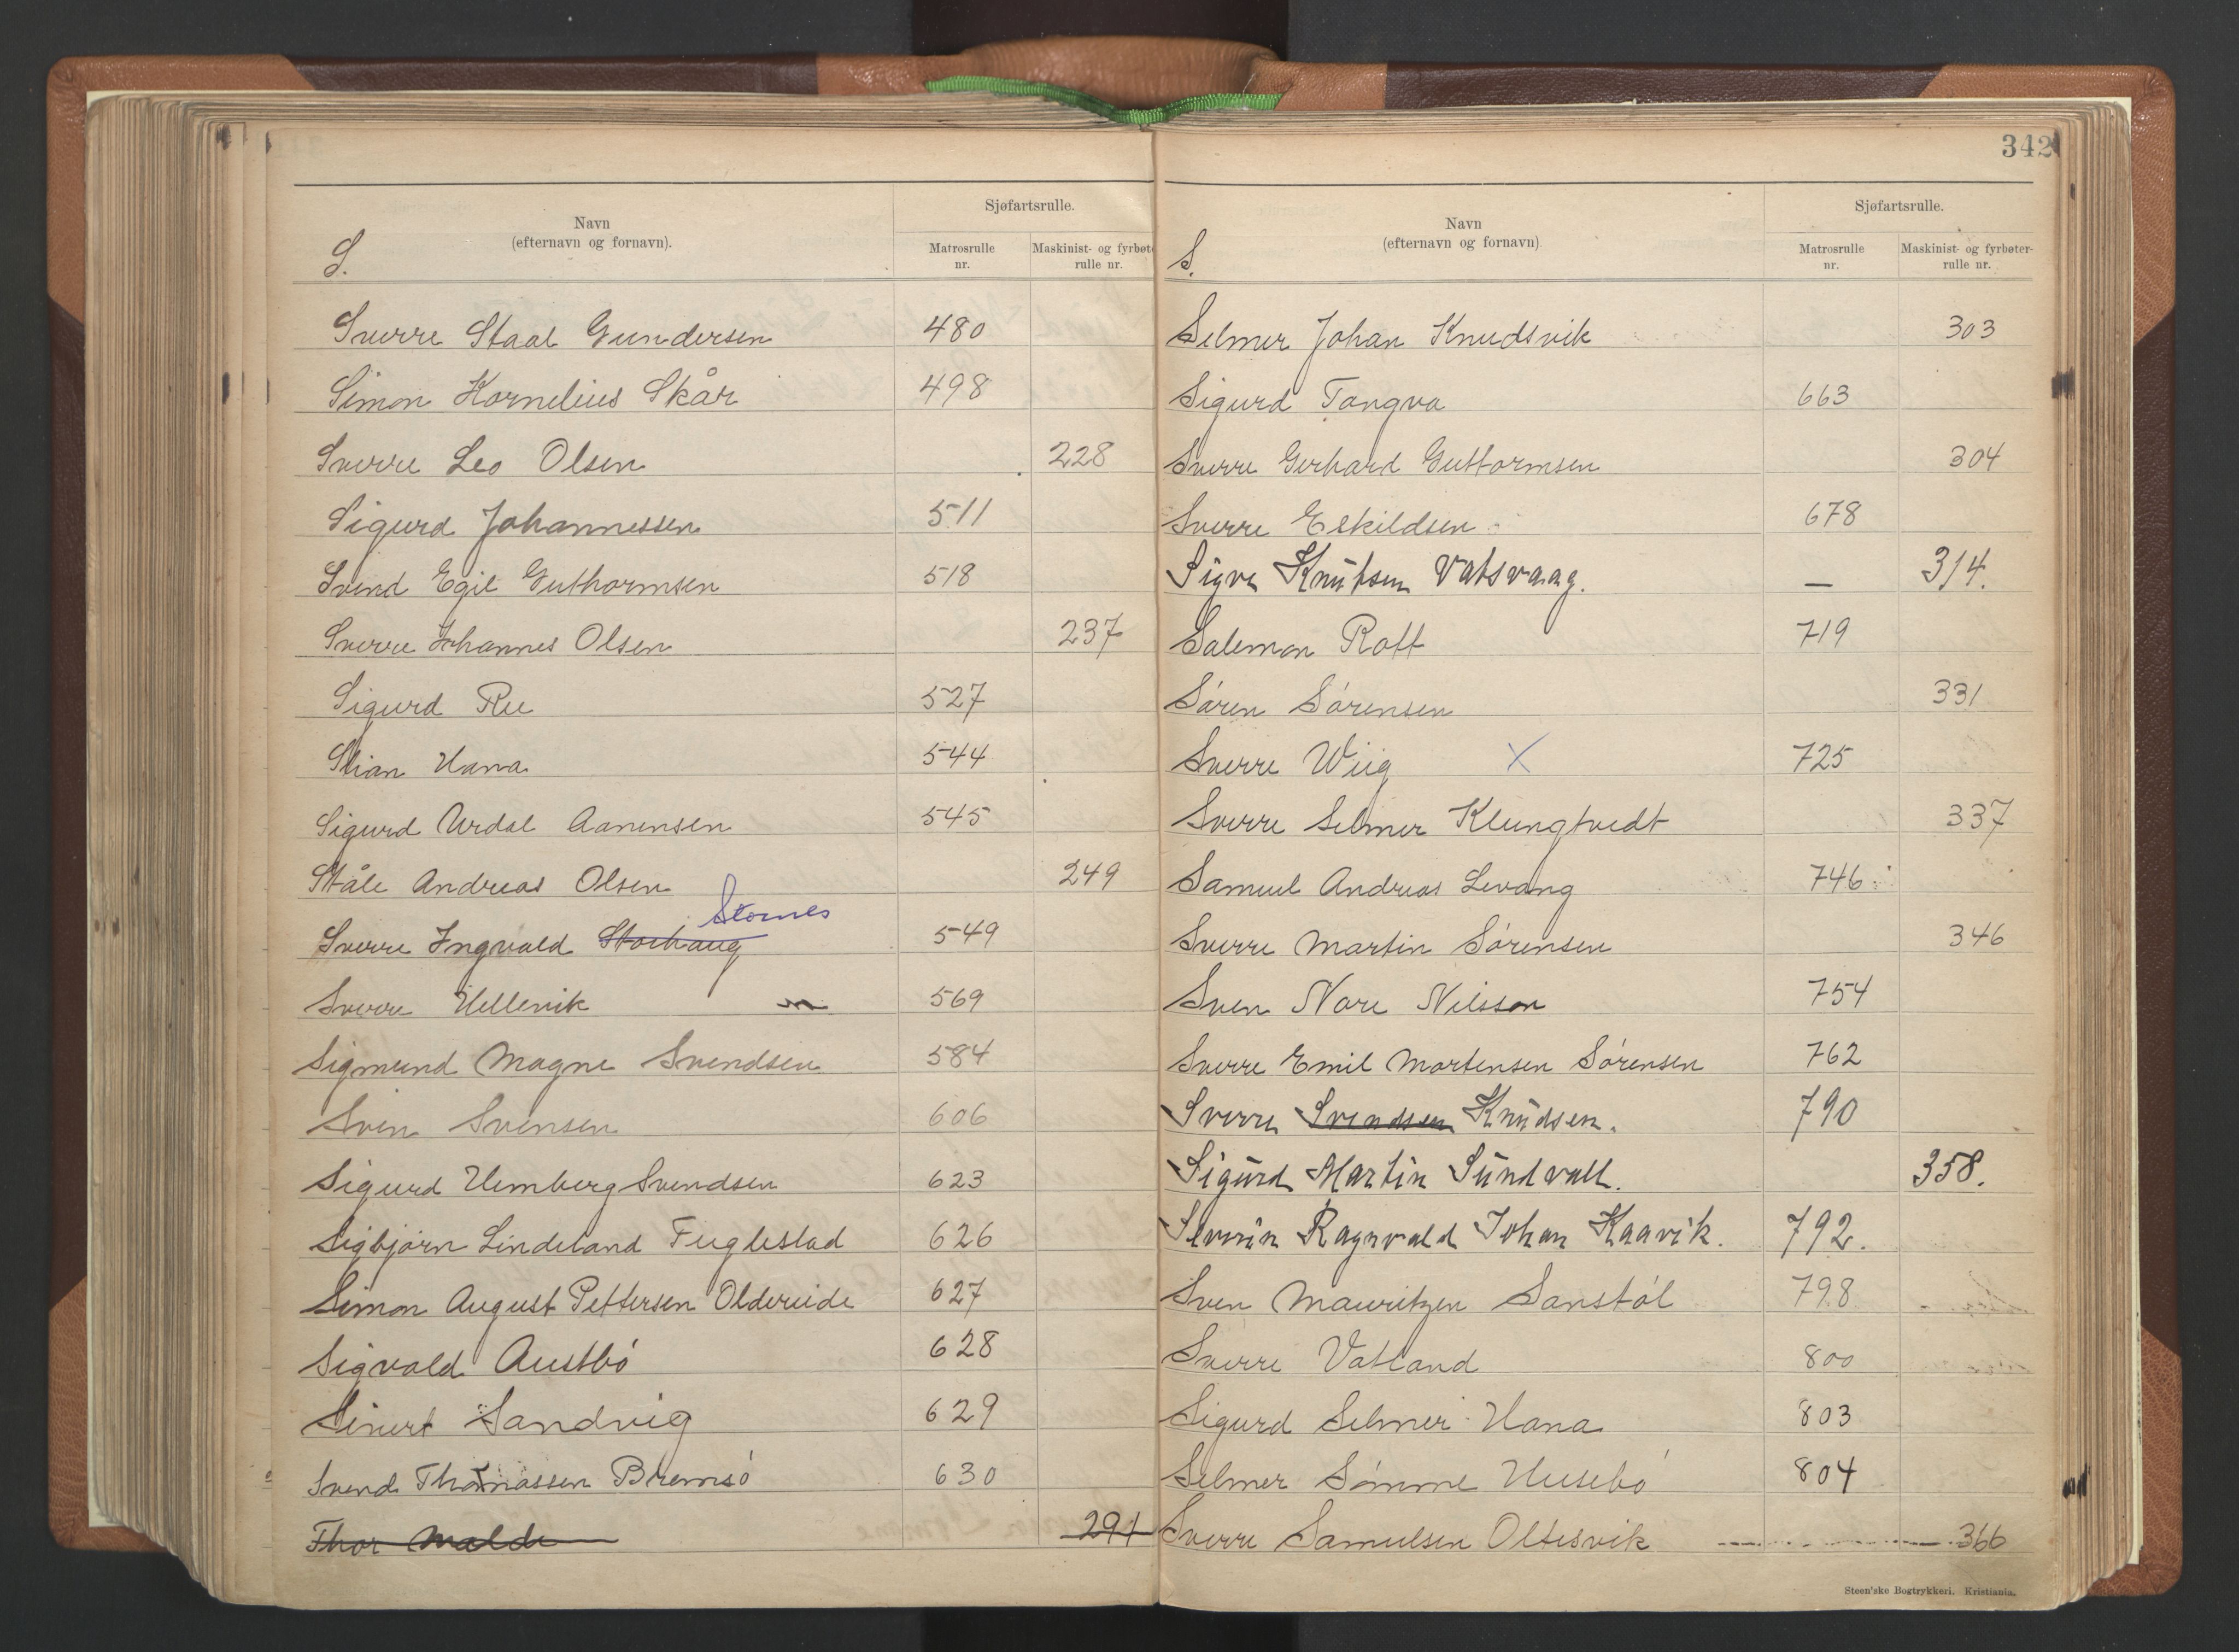 342
S.
Navn
(efternavn og fornavn).
Sjøfartsrulle.
Matrosrulle nr.
Maskinist- og fyrbøt rulle nr.
Sverre Staal Gundersen 480
Simon Kornelius Skår 498
Sverre Leo Olsen 228
Sigurd Johannessen 511
Svend Egil Guthormsen 518
Sverre Johannes Olsen 237
Sigurd Ree 527
Stian Hana 544
Sigurd Urdal Aanensen 545
Ståle Andreas Olsen 249
Stornes
Sverre Ingvald Storhaug 549
Sverre Hellevik 569
Sigmund Magne Svendsen 584
Sven Svensen 606
Sigurd Hemberg Svendsen 623
Sigbjørn Lindeland Fuglestad 626
Simon August Pettersen Oldereide 627
Sigvald Austbó 628
Sivert Sandvig 629
Svend Thomassen Bremsó 630
Thor Malde 291
S.
Navn
(efternavn og fornavn)
Sjøfartsrulle.
Matrosrulle nr.
Maskinist- og fyrbøter- rulle nr.
Selmer Johan Knudsvik 303
Sigurd Tangva 663
Sverre Gerhard Guttormsen 304
Sverre Eskildsen 678
Sigve Knutsen Vatsvaag. — 314.
Salemon Rott 719
Sóren Sórensen 331
Sverre Wiig X 725
Sverre Selmer Klungtvedt 337
Samuel Andreas Levang 746
Sverre Martin Sórensen 346
Sven Nore Nilsson 754
Sverre Emil Mortensen Sórensen 762
Sverre Svendsen Knudsen. 790
Sigurd Martin Sundvall. 358.
Severin Ragnvald Johan Kaavik. 792.
Sven Mauritzen Sanstól 798
Sverre Vatland 800
Sigurd Selmer Hana 803
Selmer Sómme Husebó 804
Sverre Samuelsen Oltesvik 366
Steen'ske Bogtrykkeri. Kristiania.